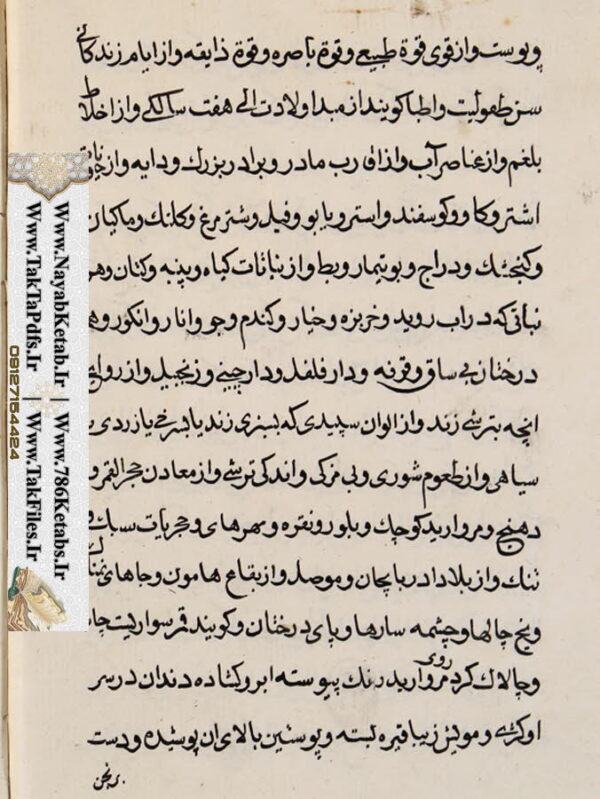 وپوست وازقوی قوة طبیعے وقوة باصره وقوة ذایقه وازایام زندکانے
سن طفولیت واطبا کویند از مبدا ولادت الی هفت سالکے وازاخلاط
بلغم وازعناصر آب وازاقارب مادر وبرادر بزرك ودایه واز
اشتر وکاو وکوسفند واستر ویابو وفیل وشترمرغ وکلنك وماکیان
وکنجشك ودراج وبوتیمار وبط واز نباتات کیاه وپنبه وکتان وهر
نباتی که در اب روید وخربزه وخیار وکندم وجو وانار وانکور وهر
درختان بی ساق وقرفه ودار فلفل ودارچینے وزنجبیل وازروایح
انچه بترشے زند وازالوان سپیدی که بسبزی زند یا بسرخے یا زردی یا
سیاهی وازطعوم شوری وبی مزکی واندکی ترشے وازمعادن حجرالقمر و
دهنج ومروارید کوچك وبلور ونقره ومهرهای وحجریات سبك و
تنك وازبلاد ادربایجان وموصل وازبقاع هامون وجاهای نمناك
ویخ چالها وچشمه سارها وپای درختان وکویند قمر سواریست چابك
وچالاك کرد روی مروارید رنك پیوسته ابرو کشاده دندان درسر
او کرے ومویش زیبا قیره بسته وپوستین بالای ان پوشیده ودست
برنجن
Www.NayabKetab.Ir | Www.786Ketabs.Ir
Www.TakTaPdfs.Ir | Www.TakFiles.Ir
09127154424